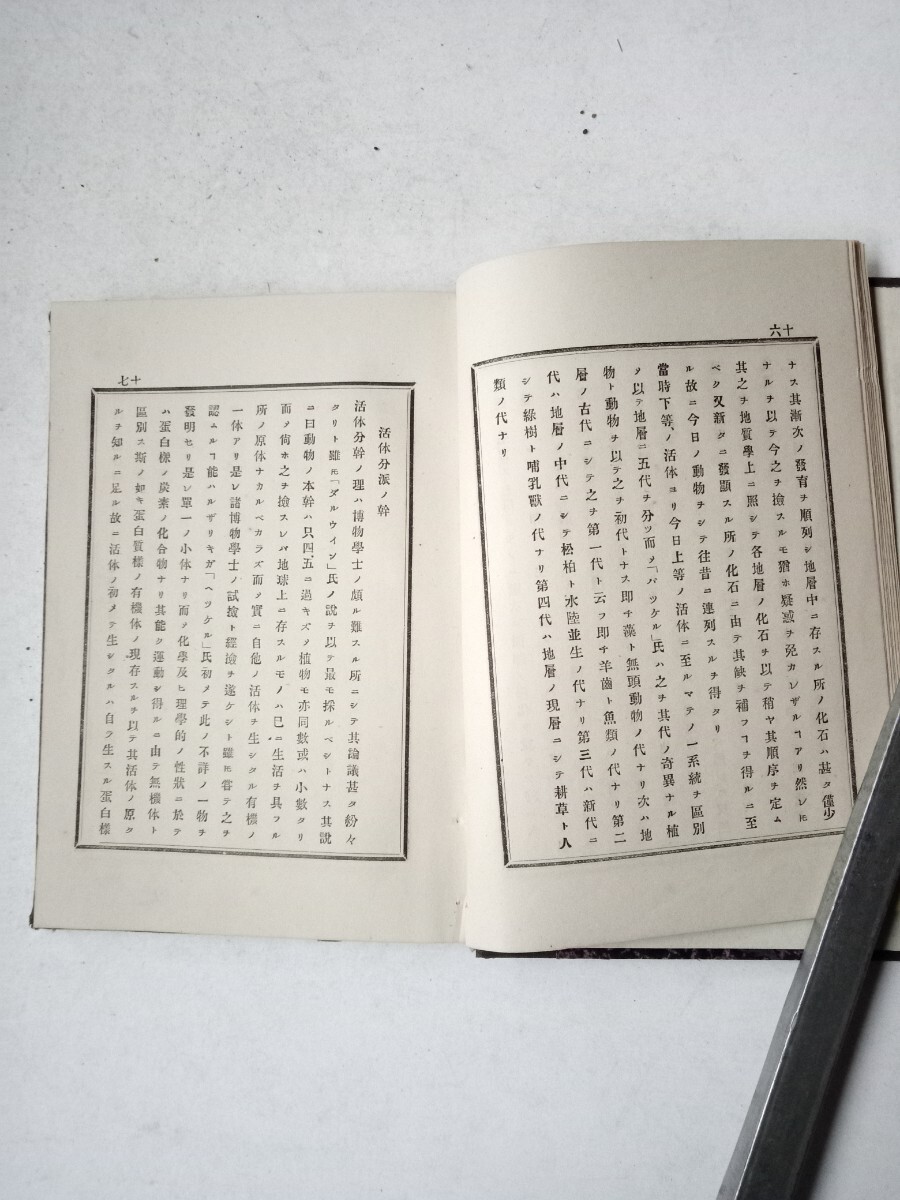 十六
ナス其漸次ノ發育ヲ順列シ地層中ニ存スル所ノ化石ハ甚タ僅少
ナルヲ以テ今之ヲ撿スルモ猶ホ疑惑ヲ免カレザルヿアリ然レ𪜈
其之ヲ地質學上ニ照シテ各地層ノ化石ヲ以テ稍ヤ其順序ヲ定ム
ベク又新タニ發顯スル所ノ化石ニ由テ其缺ヲ補フヿヲ得ルニ至
ル故ニ今日ノ動物ヲシテ往昔ニ連列スルヲ得タリ
當時下等ノ活体ヨリ今日上等ノ活体ニ至ルマテノ一系統ヲ區別
メ以テ地層ニ五代ヲ分ツ而メ「バツケル」氏ハ之ヲ其代ノ奇異ナル植
物ト動物ヲ以テ之ヲ初代トナス即チ藻ト無頭動物ノ代ナリ次ハ地
層ノ古代ニシテ之ヲ第一代ト云フ即チ羊齒ト魚類ノ代ナリ第二
代ハ地層ノ中代ニシテ松柏ト水陸並生ノ代ナリ第三代ハ新代ニ
シテ綠樹ト哺乳獸ノ代ナリ第四代ハ地層ノ現層ニシテ耕草ト人
類ノ代ナリ
十七
活体分派ノ幹
活体分幹ノ理ハ博物學士ノ頗ル難スル所ニシテ其論議甚タ紛々
タリト雖𪜈「ダルウイン」氏ノ說ヲ以テ最モ採ルベシトナス其說
ニ曰動物ノ本幹ハ只四、五ニ過キズメ植物モ亦同數或ハ小數タリ
而メ尙ホ之ヲ撿スレバ地球上ニ存スルモノハ已ニ生活ヲ具フル
所ノ原体ナカルベカラズ而メ實ニ自他ノ活体ヲ生シタル有機ノ
一体アリ是レ諸博物學士ノ試撿ト經撿ヲ遂ケシト雖𪜈嘗テ之ヲ
認ムルヿ能ハルザリキガ「ヘツケル」氏初メテ此ノ不詳ノ一物ヲ
發明セリ是レ單一ノ小体ナリ而メ化學及ヒ理學的ノ性狀ニ於テ
ハ蛋白樣ノ炭素ノ化合物ナリ其能ク運動シ得ルニ由テ無機体ト
區別ス斯ノ如キ蛋白質樣ノ有機体ノ現存スルヲ以テ其活体ノ原タ
ルヲ知ルニ足ル故ニ活体ノ初メテ生シタルハ自ラ生スル蛋白樣